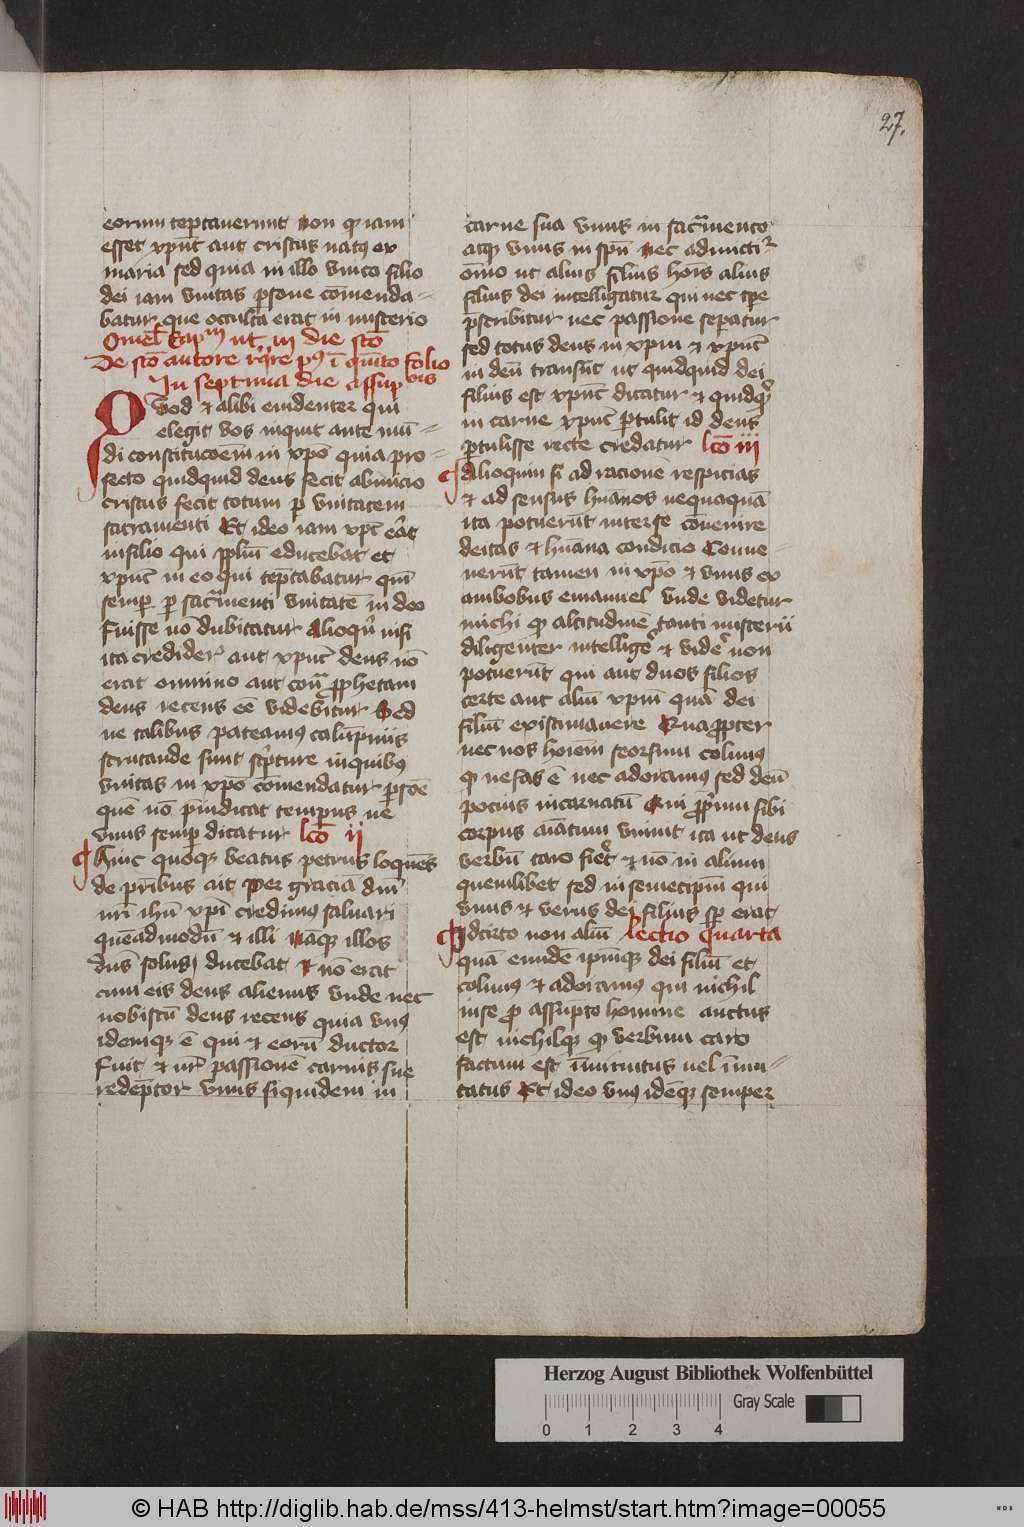 27.
eorum teptauerunt Non q̄ iam
esset xpūs aut cristus natꝰ ex
maria sed quia in illo vnico filio
dei iam vnitas ꝑsone cōmenda-
batur que occulta erat in misterio
Omel' ut in die scō
De scō autore rq̄re pꝰ ī quīto folio
In septima die assūpcōnis
Quod et alibi euidenter qui
elegit vos inquit ante mū-
di constitucoem in xpō quia pro-
fecto quidquid deus fecit ab inicio
cristus fecit totum ꝑ vnitatem
sacramenti Et ideo iam xpc erāt
in filio qui pplm̄ educebat et
xpūc in eo qui teptabatur qm̄
semꝑ ꝑ sacr̄menti vnitatē in deo
fuisse nō dubitatur Alioqn̄ nisi
ita crediderꝭ aut xpūc deus nō
erat omnino aut contra ꝓphetam
deus recens eē videbitur Sed
ne talibus pateamꝰ calūpniis
scrutande sunt scpture in quibꝰ
vnitas in xpō cōmendatur ꝑsōe
quē nō preiudicat tempus ne
vnus semꝑ dicatur lcō ii
Hinc quoqꝫ beatus petrus loquēs
de pribus ait Per graciā dnī
nrī ihū xpī credimꝰ saluari
quēadmodū et illi Naqꝫ illos
dns̄ solus ducebat Et nō erat
cum eis deus alienus vnde nec
nobiscū deus recens quia vnꝰ
idemqꝫ ē qui et eorū ductor
fuit et nr̄ passionē carnis sue
redēptor vnus siquidem in
carne sua vnus in sacr̄mento
atqꝫ vnus in spū Nec adiuncti
omō ut alius filius hoīs alius
filius dei intelligatur qui nec tpe
pscribitur nec passione sepatur
sed totus deus in xpm et xpūc
in deū transiit ut quidquid dei
filius est xpūc dicatur et quidqd
in carne xpūc ꝑtulit id deus
ꝑtulisse recte credatur lcō iii
Alioquin si ad racionē respicias
et ad sensus hūanos nequaquā
ita potuerūt inter se cōuenire
deitas et hūana condicio Conue-
nerūt tamen in xpō et vnus ex
ambobus emanuel vnde videtur
michi qꝫ altitudinē tanti misterii
diligenter intelligē et videre non
potuerūt qui aut duos filios
certe aut aliū xpm quā dei
filiū existimauere Quapropter
nec nos hoiem seorsum colimꝰ
qꝫ nefas ē nec adoramꝰ sed deū
pocius incarnatū Qui ꝓprium sibi
corpus aīatum vniuit ita ut deus
verbū caro fieret et nō in alium
quemlibet sed in semetipm qui
vnus et verus dei filius semꝑ erat
Idcirco non aliū Lectio Quarta
quā eundē ipmqꝫ dei filiū et
colimꝰ et adoramꝰ qui nichil
in se ꝓ assūpto homine auctus
est nichilqꝫ qꝫ verbum caro
factum est īminutus uel īmu-
tatus Et ideo vnꝰ idēqꝫ semper
Herzog August Bibliothek Wolfenbüttel
Gray Scale
0 1 2 3 4
© HAB http://diglib.hab.de/mss/413-helmst/start.htm?image=00055
WDB